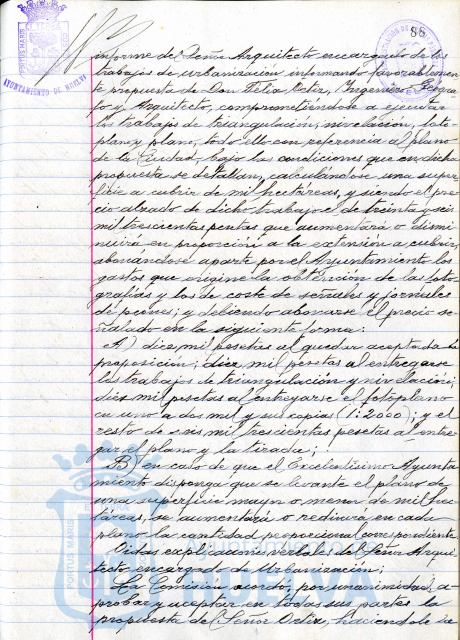 88
AYUNTAMIENTO DE HUELVA
informe del Señor Arquitecto encargado de los
trabajos de Urbanización informando favorablemen
te propuesta de Don Félix Ortiz, Ingeniero Geógra-
fo y Arquitecto, comprometiéndose a ejecutar
los trabajos de triangulación, nivelación, foto-
plano y plano, todo ello con referencia al plano
de la Ciudad, bajo las condiciones que en dicha
propuesta se detallan, calculándose una super-
ficie a cubrir de mil hectáreas, y siendo el pre-
cio alzado de dicho trabajo el de treinta y seis
mil trescientas pesetas que aumentará o dismi-
nuirá en proporción a la extensión a cubrir,
abonándose aparte por el Ayuntamiento los
gastos que origine la obtención de las foto-
grafías y los de coste de señales y jornales
de peones; y debiendo abonarse el precio se-
ñalado en la siguiente forma:
A) diez mil pesetas al quedar aceptada la
proposición; diez mil pesetas al entregarse
los trabajos de triangulación y nivelación;
diez mil pesetas al entregarse el fotoplano
en uno a dos mil y sus copias (1:2000); y el
resto de seis mil trescientas pesetas al entre-
gar el plano y la tirada;
B) en caso de que el Excelentísimo Ayunta-
miento disponga que se levante el plano de
una superficie mayor o menor de mil hec-
táreas, se aumentará o reducirá en cada
plano la cantidad proporcional correspondiente
Oidas explicaciones verbales del Señor Arqui-
tecto encargado de Urbanización;
La Comisión acordó, por unanimidad, a-
probar y aceptar en todas sus partes la
propuesta del Señor Ortiz, haciéndole la
PORTUS MARIS
HUELVA